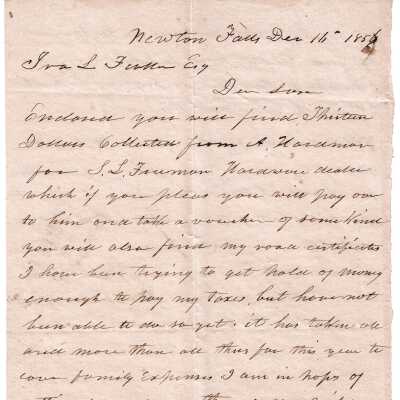 Newton Falls Dec 16th 1856
Ira L Fuller Esq
Dear Sir
Enclosed you will find Thirteen
Dollars Collected from A. Hardman
for S. L. Freeman Hardware dealer
which if you pleas you will pay over
to him and take a voucher of some kind
you will also find my road certificates
I have ben trying to get hold of money
enough to pay my taxes, but have not
been able to do so yet. it has taken all
and more than all thus far this year to
cover family Expenses I am in hopes of